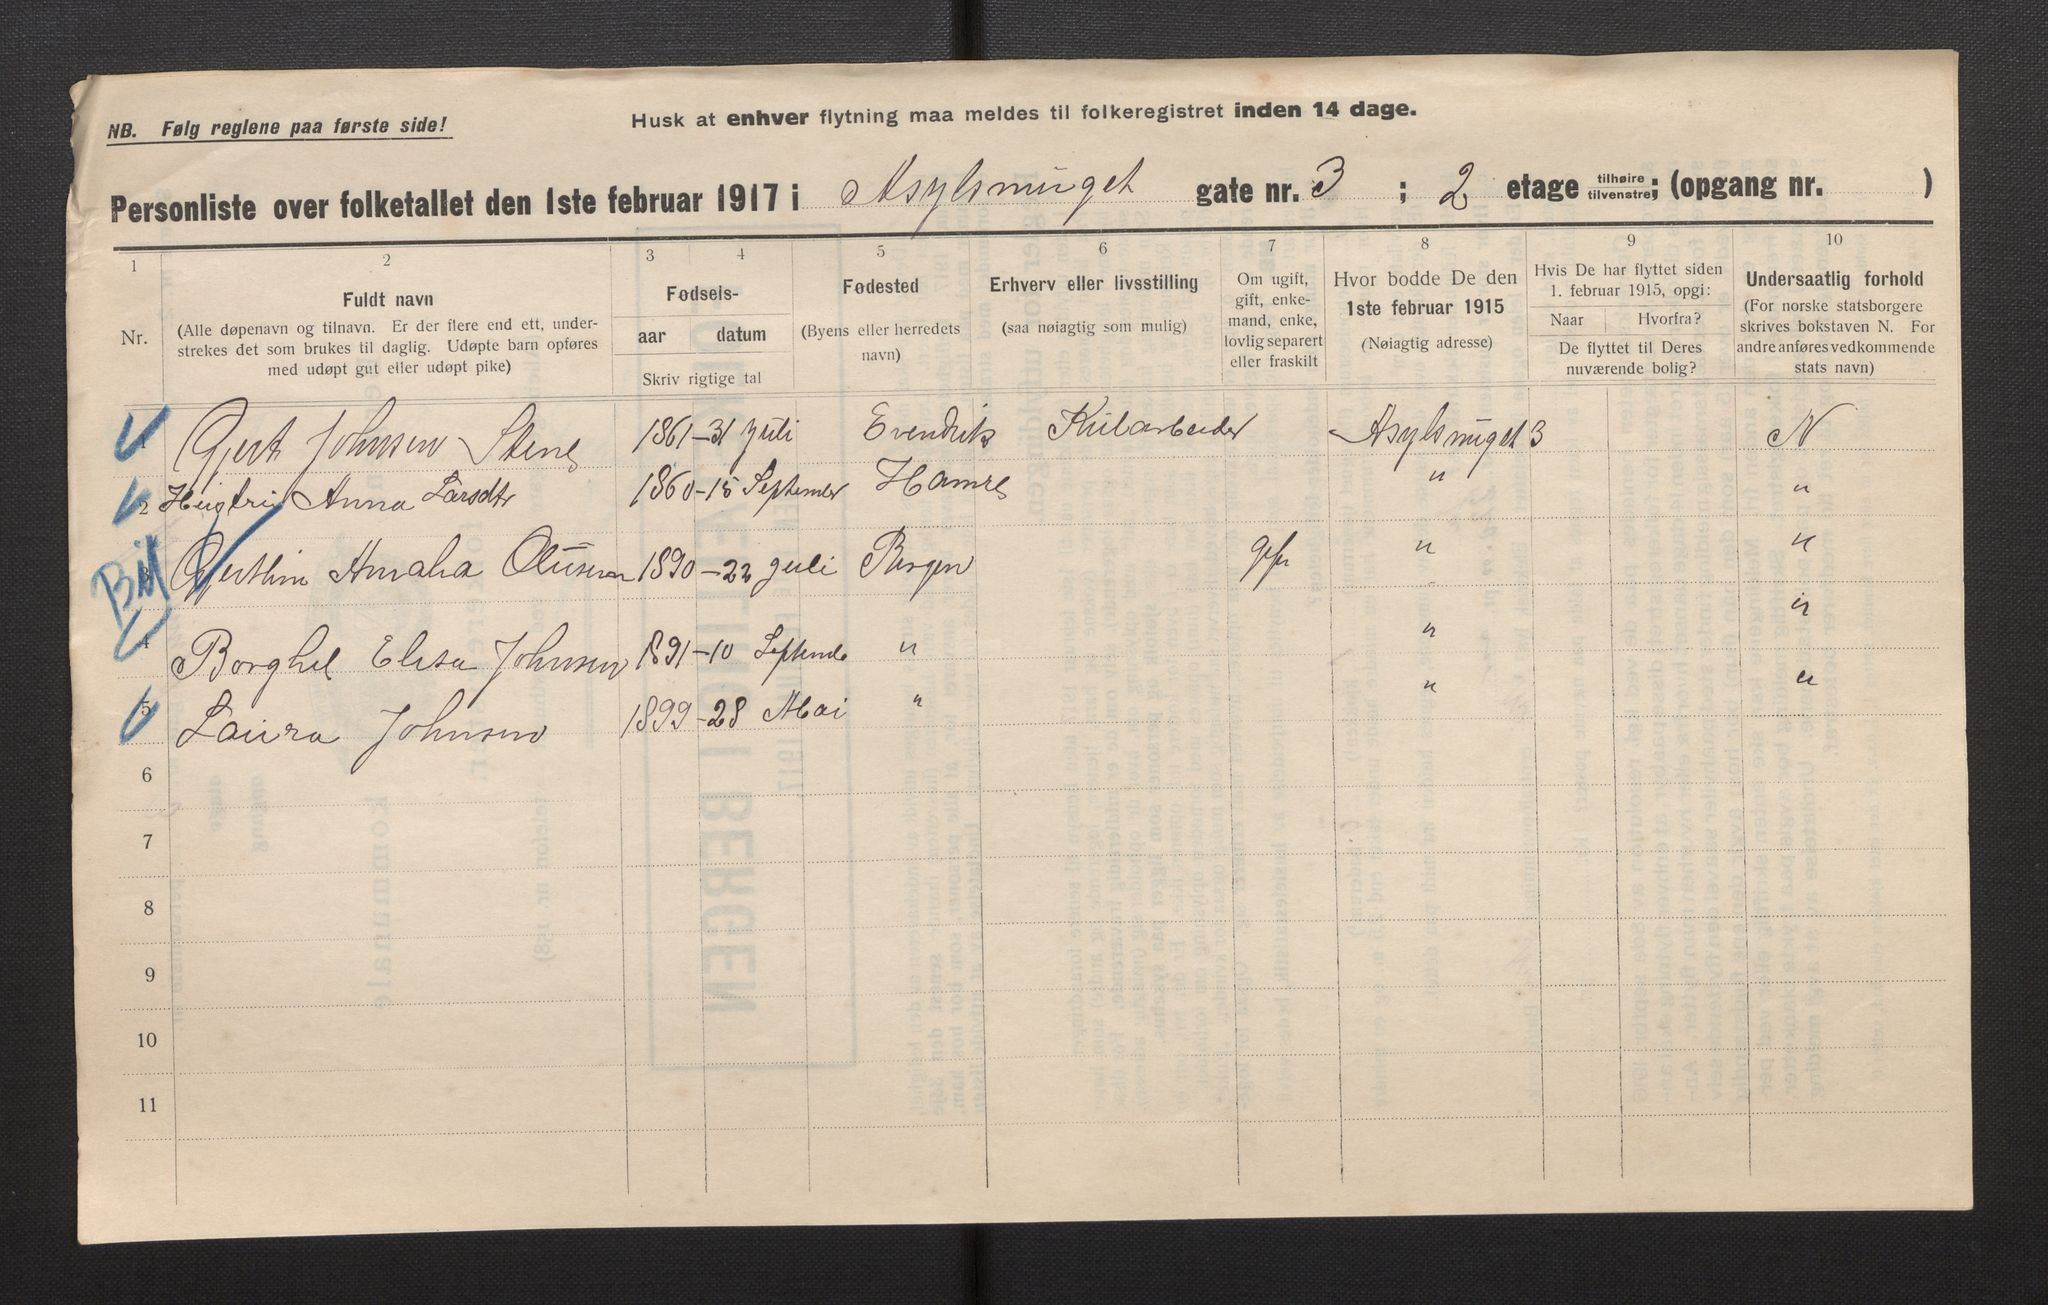 NB. Følg reglene paa første side!
Husk at enhver flytning maa meldes til folkeregistret inden 14 dage.
Personliste over folketallet den 1ste februar 1917 i Asylsmuget gate nr. 3 ; 2 etage tilhøire tilvenstre; (opgang nr. )
1 2 3 4 5 6 7 8 9 10
Nr.
Fuldt navn
(Alle døpenavn og tilnavn. Er der flere end ett, under-
strekes det som brukes til daglig. Udøpte barn opføres
med udøpt gut eller udøpt pike)
Fødsels-
aar datum
Skriv rigtige tal
Fødested
(Byens eller herredets
navn)
Erhverv eller livsstilling
(saa nøiagtig som mulig)
Om ugift,
gift, enke-
mand, enke,
lovlig separert
eller fraskilt
Hvor bodde De den
1ste februar 1915
(Nøiagtig adresse)
Hvis De har flyttet siden
1. februar 1915, opgi:
Naar Hvorfra?
De flyttet til Deres
nuværende bolig?
Undersaatlig forhold
(For norske statsborgere
skrives bokstaven N. For
andre anføres vedkommende
stats navn)
1 Gjert Johnsen Stene 1861 - 31 Juli Evendvik Kularbeider Asylsmuget 3 N
2 Anna Larsdtr 1860 - 15 September Hamre " "
3 Amalia Olusen 1890 - 22 Juli Bergen " "
4 Borghil Elisa Johnsen 1891 - 10 Septembe " " "
5 Laura Johnsen 1899 - 28 Mai " " "
6
7
8
9
10
11